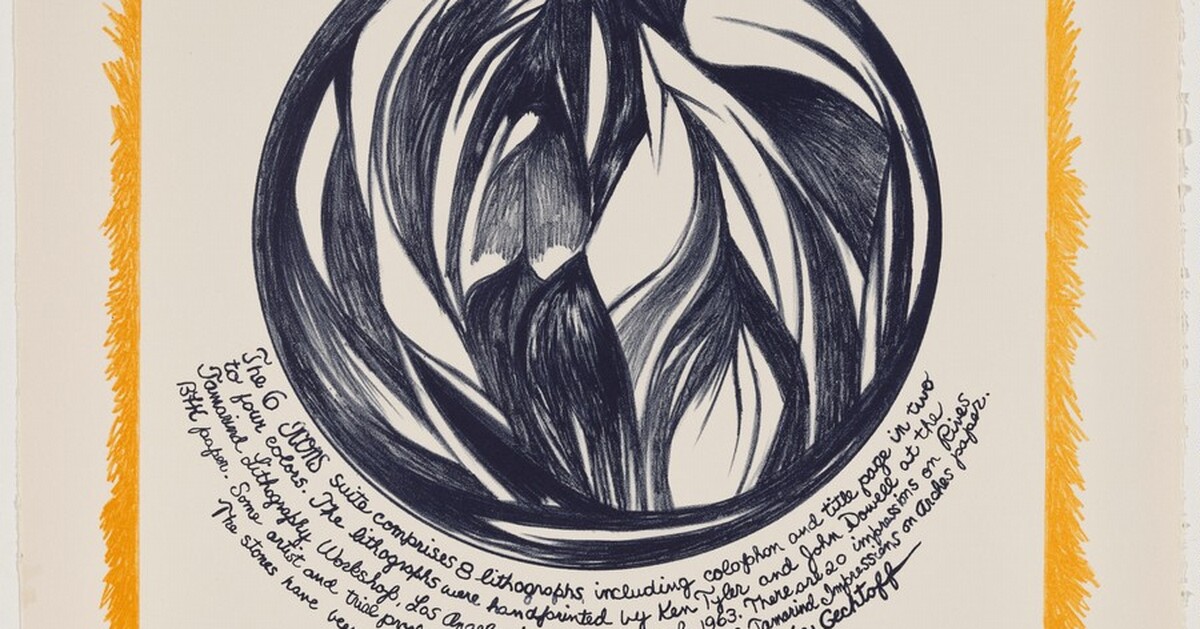 The 6 ICONS suite comprises 8 lithographs, including colophon and title page in two
to four colors. The lithographs were handprinted by Ken Tyler and John Dowell at the
Tamarind Lithography Workshop, Los 1963. There are 20 impressions on Rives
BFK paper. Some artist and trial Tamarind Impressions on Arches paper.
The stones have Gechtoff